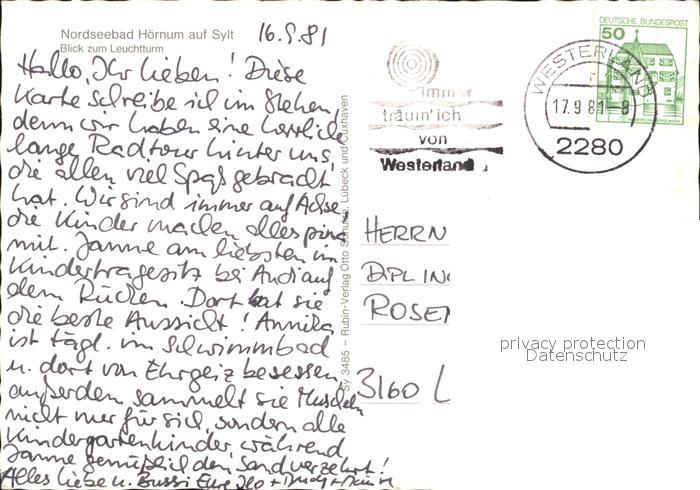 Nordseebad Hörnum auf Sylt
Blick zum Leuchtturm
16.9.81
Hallo, Ihr Lieben! Diese
Karte schreibe ich im Stehen,
denn wir haben eine herrliche
lange Radtour hinter uns,
die allen viel Spaß gebracht
hat. Wir sind immer auf Achse,
die Kinder machen alles prima
mit. Janne am liebsten im
Kindertragesitz bei Andi auf
dem Rücken. Dort hat sie
die beste Aussicht! Annika
ist tägl. im Schwimmbad
u. dort von Ehrgeiz besessen,
außerdem sammelt sie Muscheln
nicht nur für sich, sondern alle
Kindergartenkinder, während
Janne genüßlich den Sand verzehrt!
Alles Liebe u. Bussi Eure
Sy 3485 – Rubin-Verlag Otto Schulze, Lübeck und Cuxhaven
Immer
träum' ich
von
Westerland
WESTERLAND
17.9.81-8
2280
DEUTSCHE BUNDESPOST
50
HERRN
DIPL ING
ROSEN
3160 L
privacy protection
Datenschutz